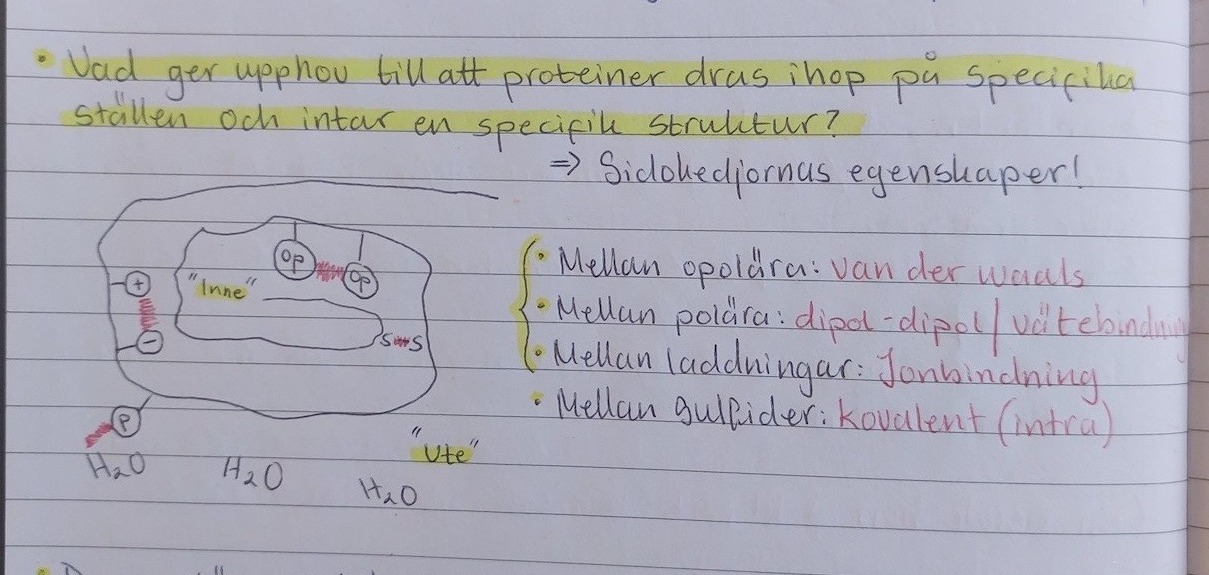 • Vad ger upphov till att proteiner dras ihop på specifika
ställen och intar en specifik struktur?
⇒ Sidokedjornas egenskaper!
op
op
+
"Inne"
-
S S
P
H₂O
H₂O
H₂O
"Ute"
• Mellan opolära: van der waals
• Mellan polära: dipol-dipol/vätebindning
• Mellan laddningar: Jonbindning
• Mellan sulfider: kovalent (intra)